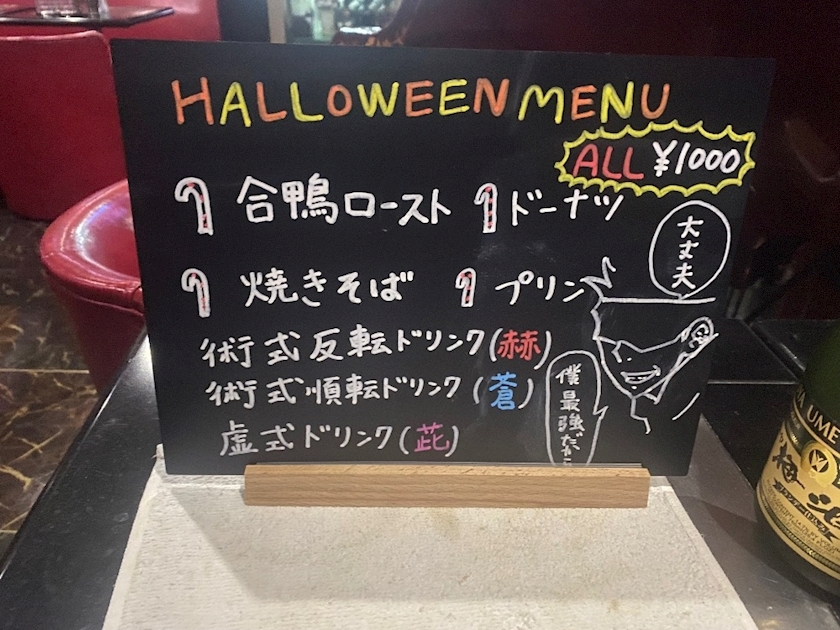 HALLOWEEN MENU
ALL ¥1000
合鴨ロースト ドーナツ
焼きそば プリン
大丈夫
術式反転ドリンク(赫)
術式順転ドリンク(蒼)
虚式ドリンク(茈)
僕最強だから
UME
梅酒